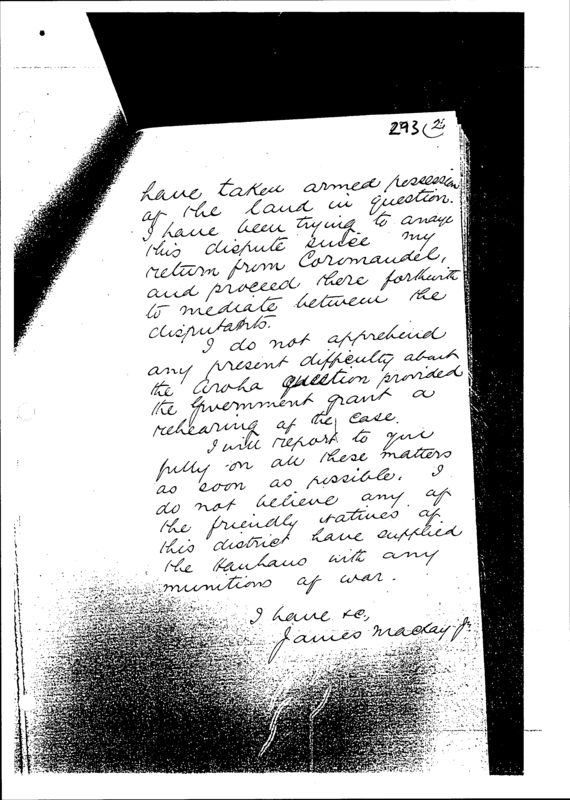 293 (2)
have taken armed possession
of the land in question.
I have been trying to arrange
this dispute since my
return from Coromandel,
and proceed there forthwith
to mediate between the
disputants.
I do not apprehend
any present difficulty about
the Aroha question provided
the Government grant a
rehearing of the case.
I will report to you
fully on all these matters
as soon as possible. I
do not believe any of
the friendly natives of
this district have supplied
the Hauhaus with any
munitions of war.
I have &c,
James Mackay Jr.